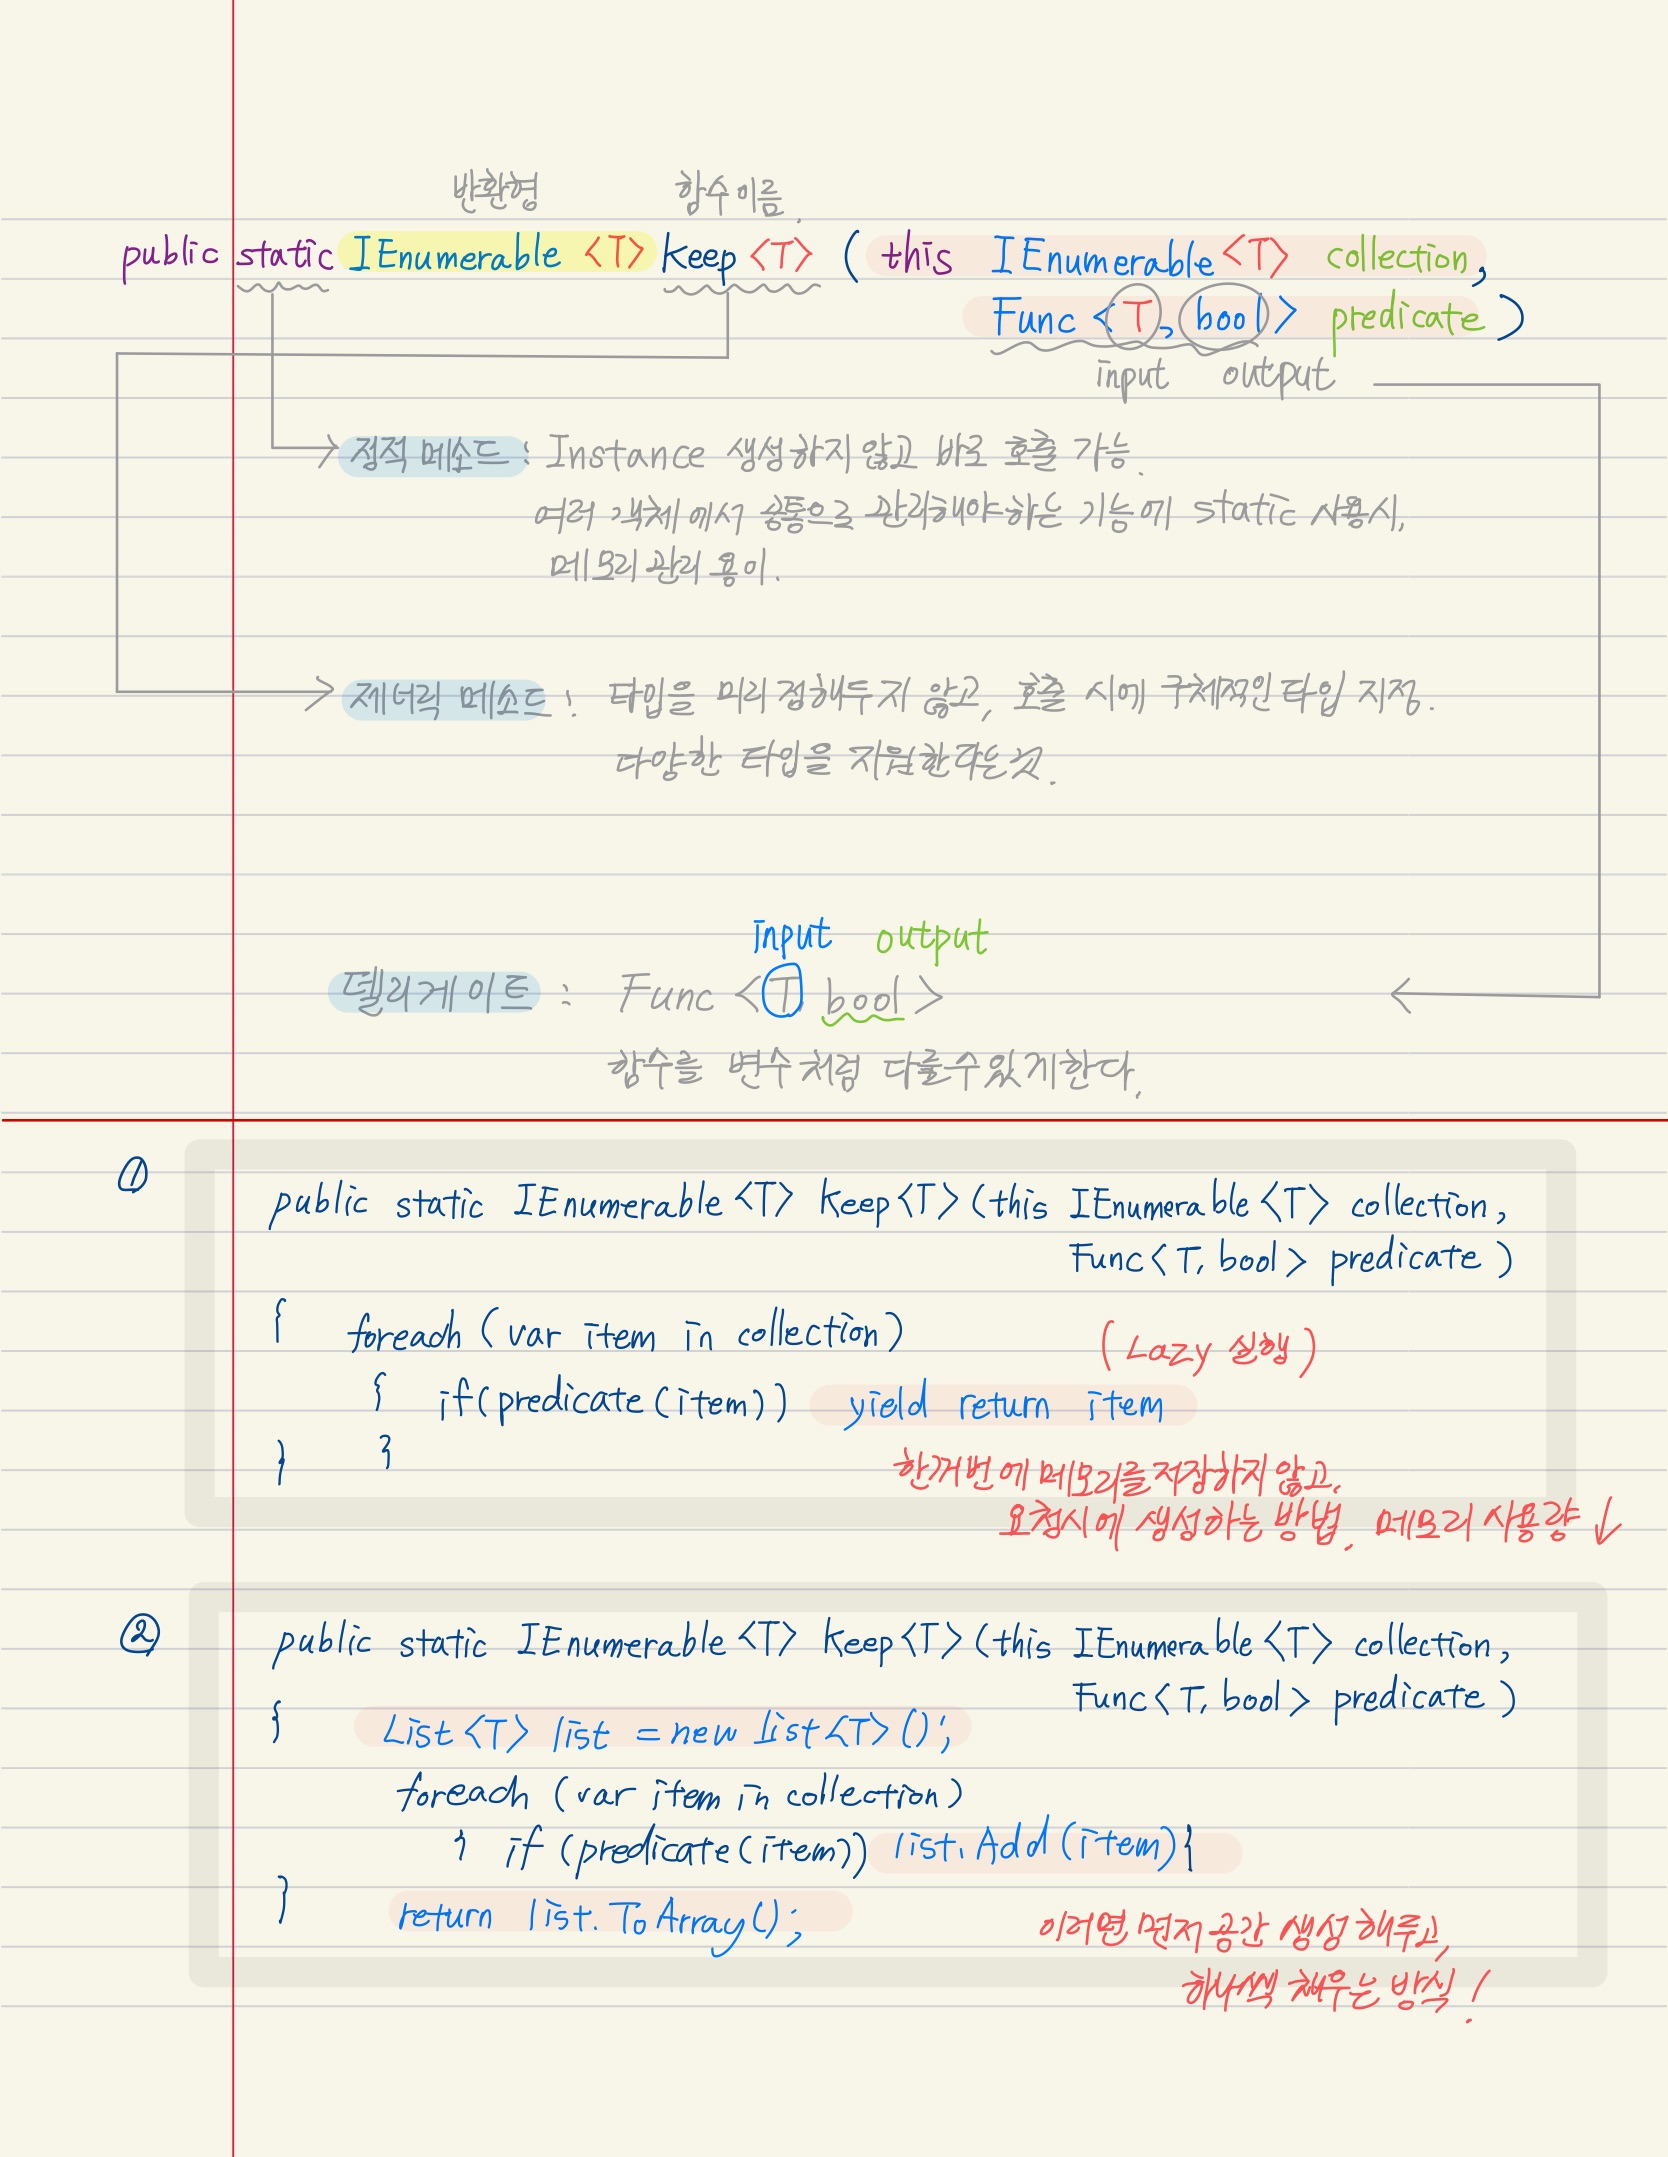 반환형 함수이름.
public static IEnumerable <T> keep <T> ( this IEnumerable <T> collection,
Func <T, bool> predicate )
input output
정적 메소드 : Instance 생성하지 않고 바로 호출 가능.
여러 객체에서 공통으로 관리해야하는 기능에 static 사용시,
메모리 관리 용이.
제너릭 메소드 : 타입을 미리 정해두지 않고, 호출 시에 구체적인 타입 지정.
다양한 타입을 지원한다는것.
input output
델리게이트 : Func <T bool>
함수를 변수처럼 다룰수있게한다.
①
public static IEnumerable <T> keep<T> (this IEnumerable <T> collection,
Func<T, bool> predicate )
{ foreach (var item in collection)
(Lazy 실행)
{ if(predicate (item)) yield return item
} }
한꺼번에 메모리를 저장하지 않고,
요청시에 생성하는 방법. 메모리 사용량 ↓
②
public static IEnumerable <T> keep<T> (this IEnumerable <T> collection,
Func<T, bool> predicate )
{ List<T> list = new list<T>();
foreach (var item in collection)
} if (predicate (item)) list.Add (item)}
} return list. ToArray();
이러면 먼저 공간 생성 해두고,
하나씩 채우는 방식!